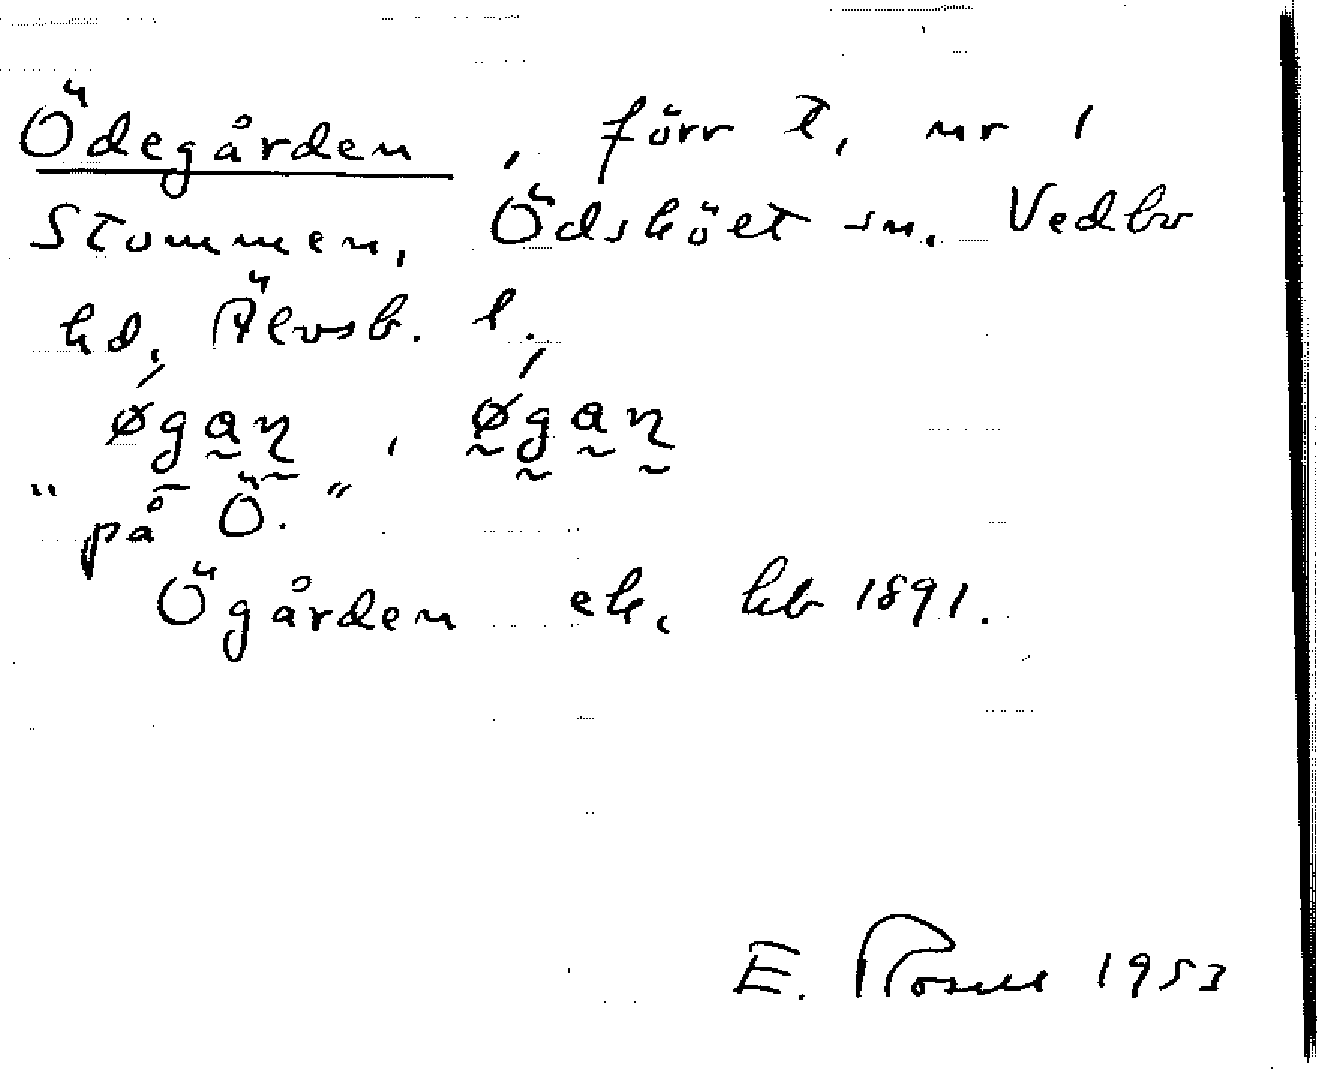 Ödegården, förr t, nr 1
Stommen, Ödsköet sn. Vedbo
hd, Älvsb. l.,
øgan, øgan
"på Ö."
Ögården ek, hb 1891.
E. Rosell 1953